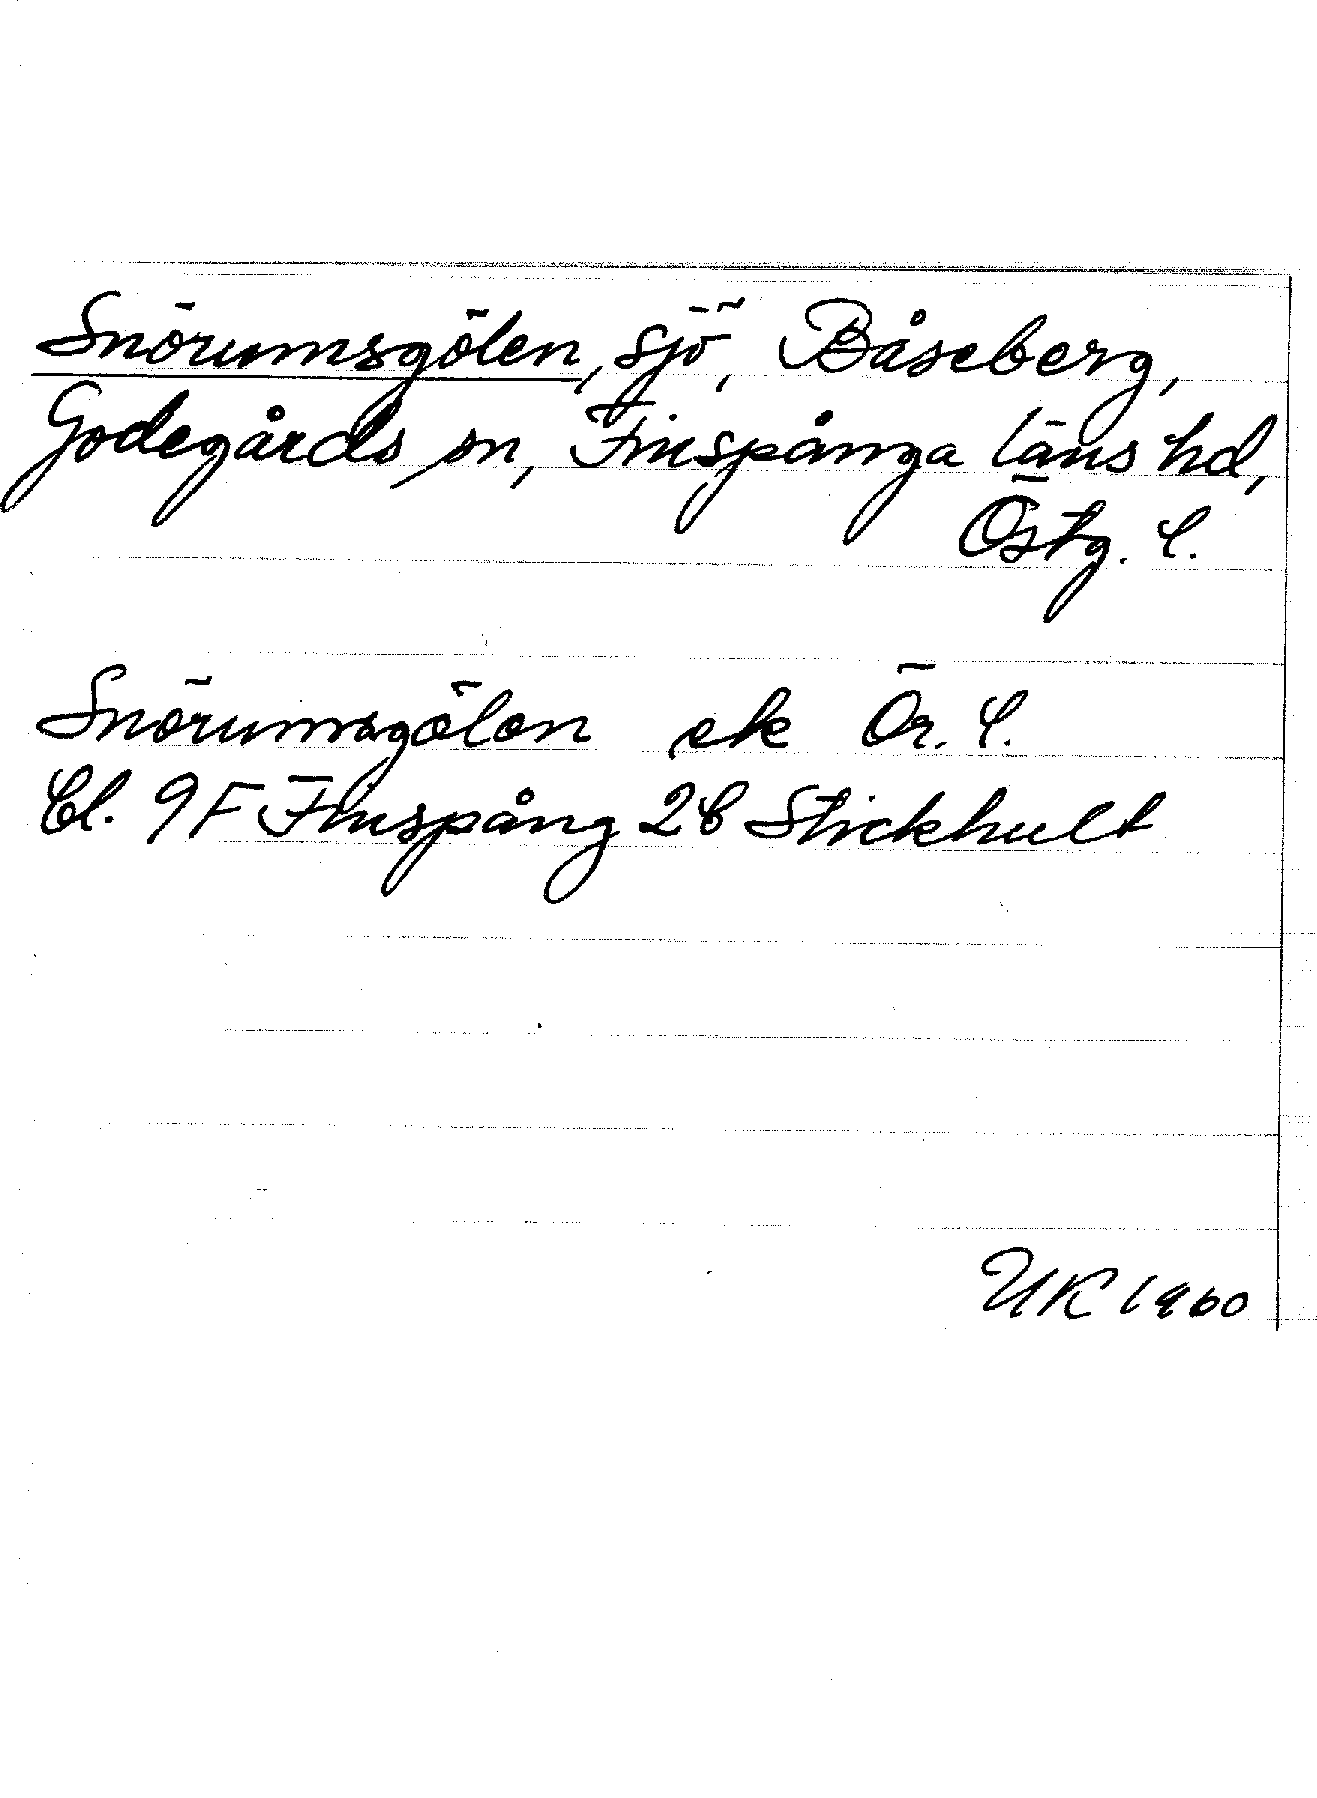 Snörumsgölen, sjö, Båseberg,
Godegårds sn, Finspånga läns hd,
Östg. l.
Snörumsgölen ek Ör. l.
Bl. 9F Finspång 2b Stickhult
UK 1960